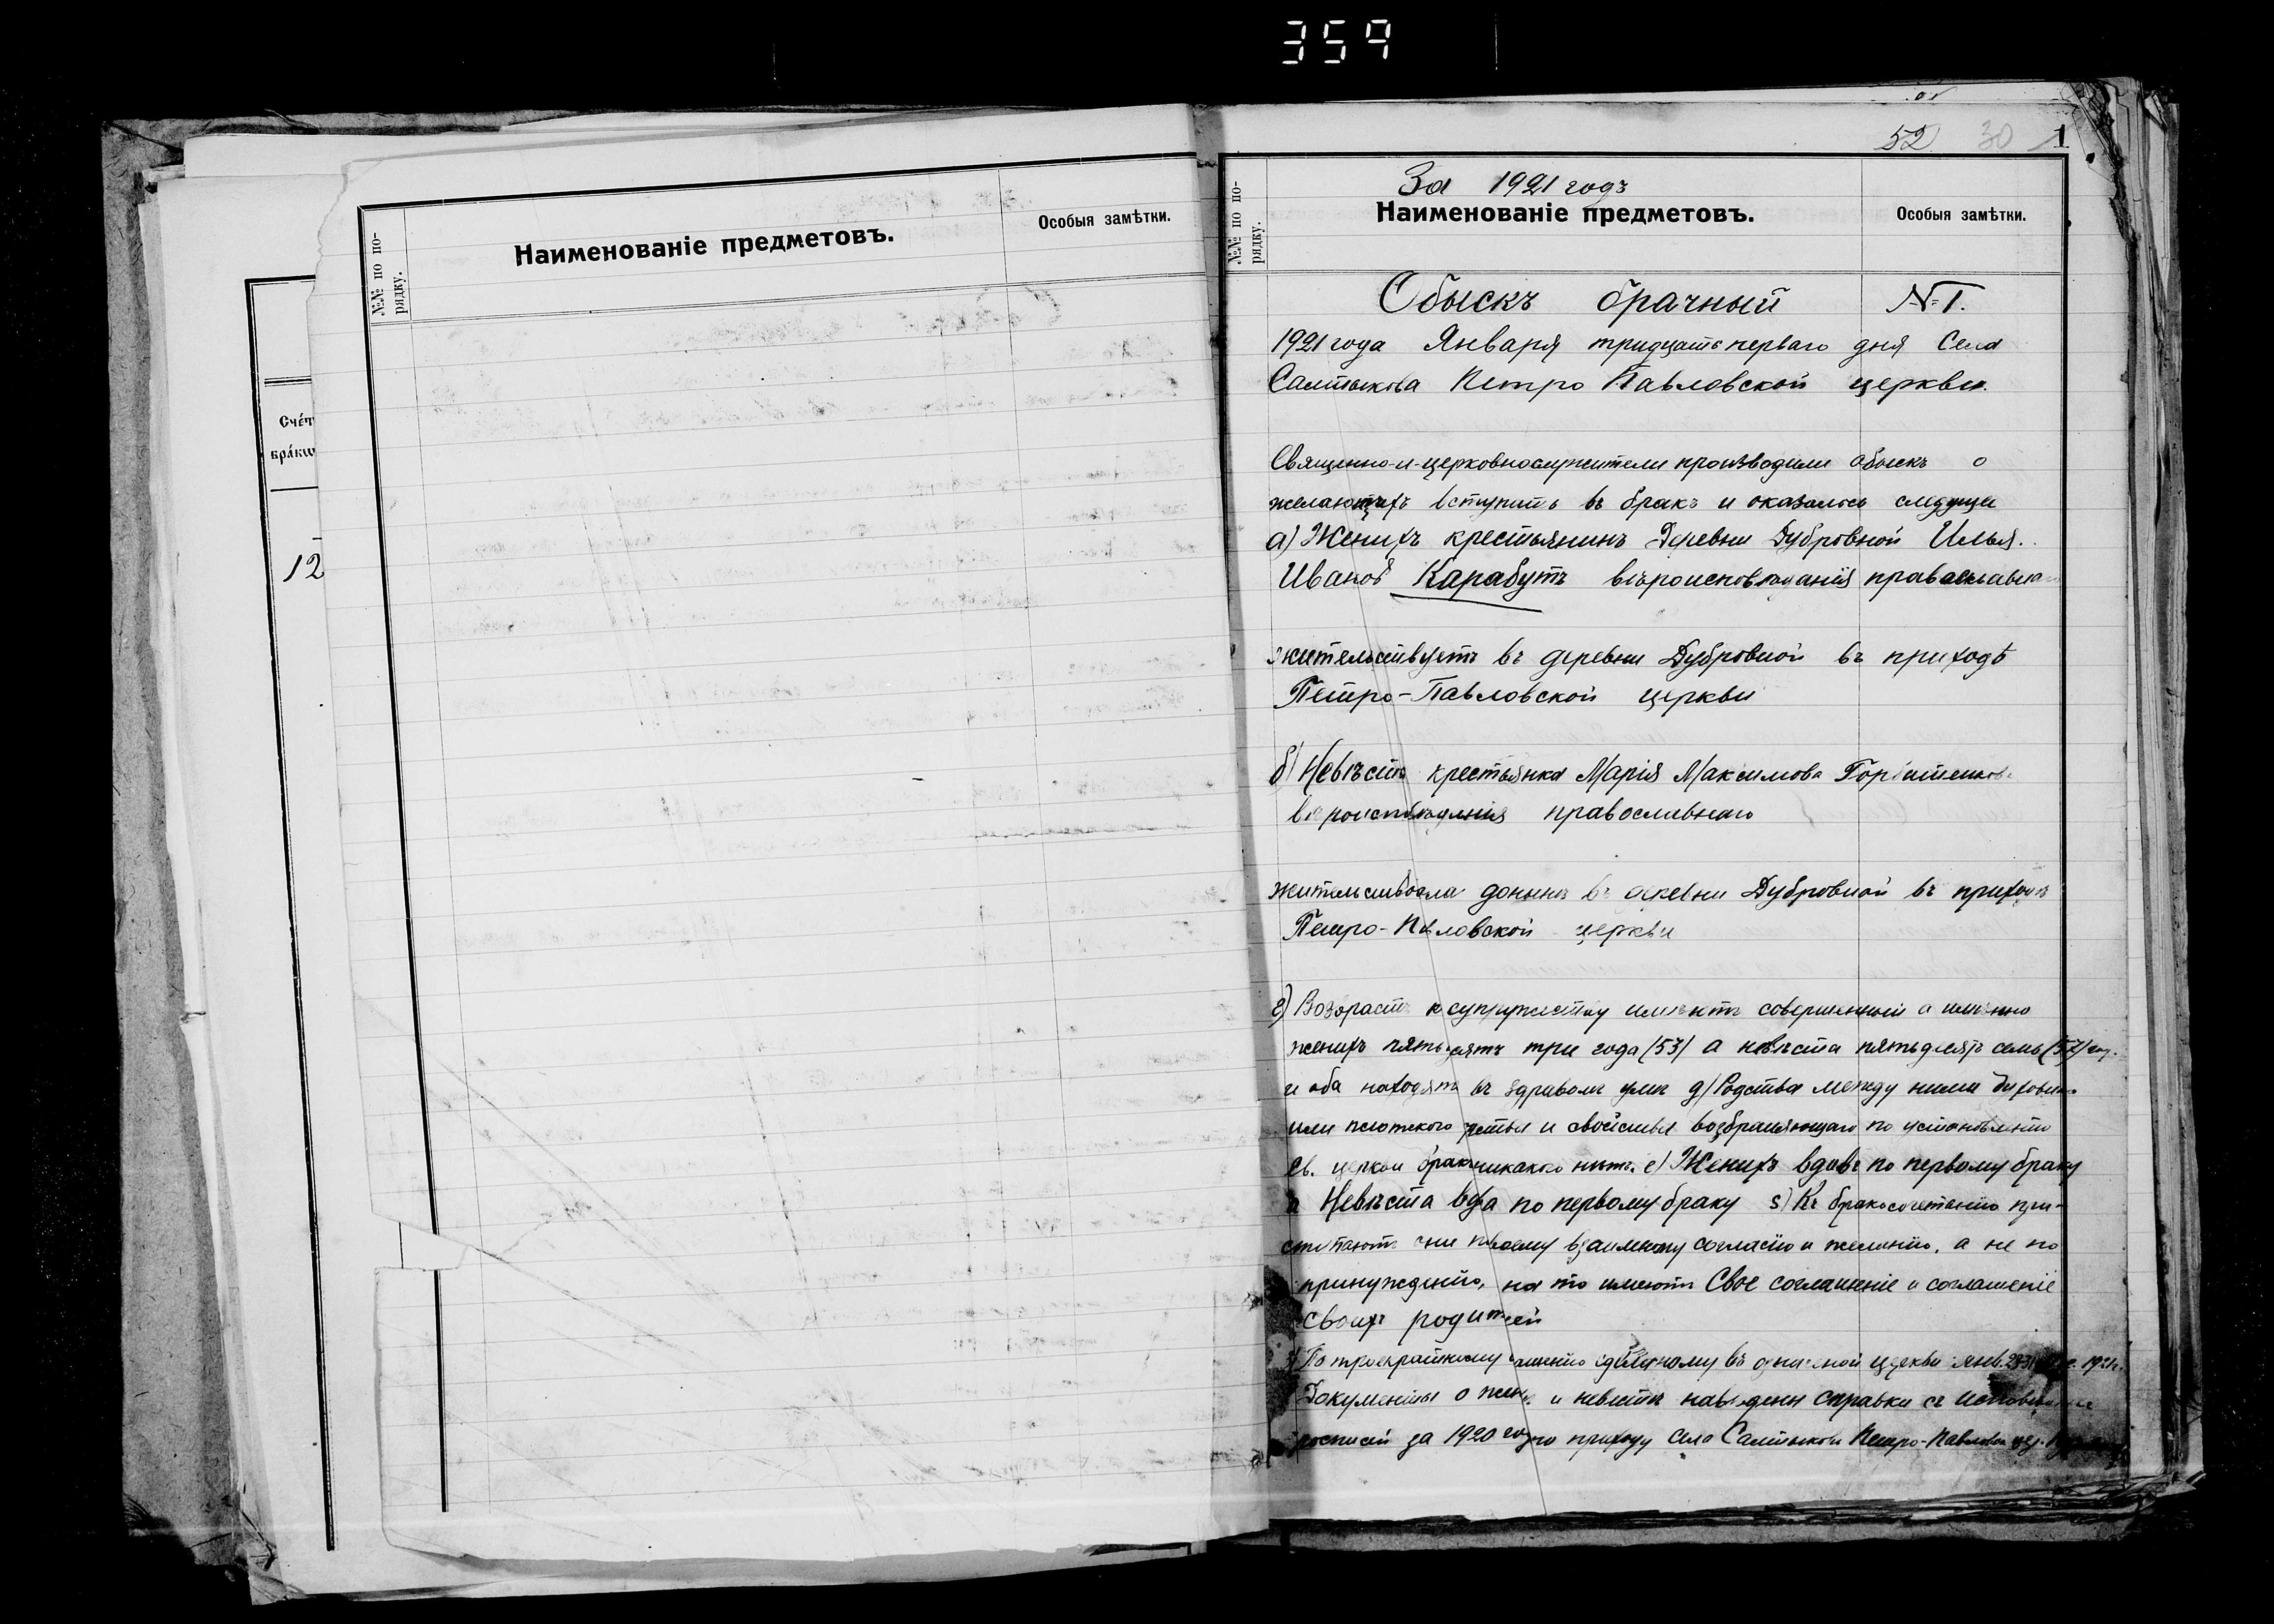 359
№№ по по-
рядку.
Наименованіе предметовъ.
Особыя замѣтки.
Счéт
брáкѡ
12
52 30 1
За 1921 годъ
№№ по по-
рядку.
Наименованіе предметовъ.
Особыя замѣтки.
Обыскъ брачный № 1.
1921 года Января тридцать перваго дня Села
Салтыкова Петро Павловской церкви.
Священно-и-церковнослужители производили обыскъ о
желающихъ вступить въ бракъ и оказалось
а) Женихъ крестьянинъ Деревни Дубровной Илья
Иванов Карабутъ вѣроисповѣданія
жительствуетъ въ деревни Дубровной въ приходѣ
Петро-Павловской церкви
б) Невѣста крестьянка Марія Максимова
православнаго
жительствовала донынѣ въ деревни Дубровной въ приходѣ
Петро-Павловской церкви
Возрастъ к супружеству имѣютъ совершенный а именно
женихъ три года (53) а невѣста пятьдесятъ семь (57) год.
и оба въ здравомъ умѣ д) Родства между ними
или плотского и свойства возбраняющаго по установленію
Св. церкви никакого нѣтъ. е) Женихъ вдовъ по первому браку
а Невѣста вдва по первому браку ѕ) Къ бракосочетанію при-
ступаютъ они взаимному согласію и желанію, а не по
принужденію, на то имеютъ Свое соглашеніе и соглашеніе
своихъ родителей
По троекратному въ церкви
Документы о и невѣстѣ справки съ
росписей за 1920 годъ по приходу Села Салтыкова Петро-Павлов